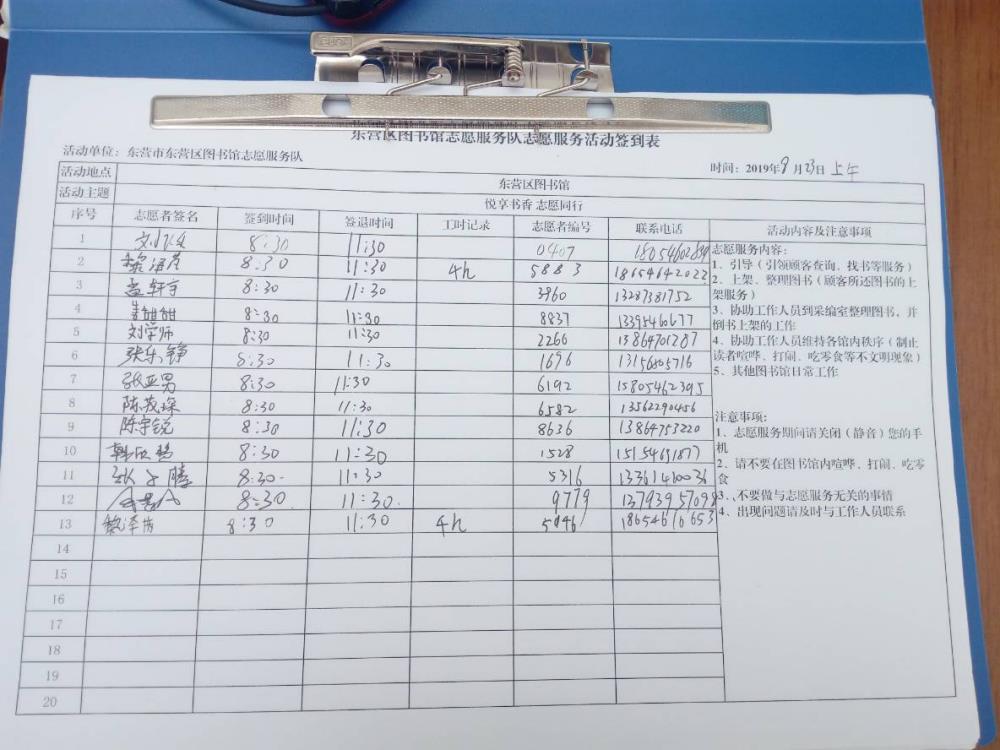 东营区图书馆志愿服务队志愿服务活动签到表
活动单位：东营市东营区图书馆志愿服务队
时间：2019年9月23日 上午
活动地点 东营区图书馆
活动主题 悦享书香 志愿同行
序号 志愿者签名 签到时间 签退时间 工时记录 志愿者编号 联系电话 活动内容及注意事项
1 8:30 11:30 0407
2 8:30 11:30 4h 5883 18654642022
3 孟轩宇 8:30 11:30 3960 13287381752
4 8:30 11:30 8837 13395460677
5 刘学师 8:30 11:30 2266 13864701287
6 张乐铮 8:30 11:30 1696 13156805716
7 张亚男 8:30 11:30 6192 15805462395
8 陈茂琛 8:30 11:30 6582 13562290456
9 陈宇锐 8:30 11:30 8636 13864753220
10 8:30 11:30 1528 15154691877
11 8:30 11:30 5316
12 8:30 11:30 9779
13 8:30 11:30 4h
14
15
16
17
18
19
20
志愿服务内容：
1、引导（引领顾客查询、找书等服务）
2、上架、整理图书（顾客所还图书的上
架服务）
3、协助工作人员到采编室整理图书，并
倒书上架的工作
4、协助工作人员维持各馆内秩序（制止
读者喧哗、打闹、吃零食等不文明现象）
5、其他图书馆日常工作
注意事项：
1、志愿服务期间请关闭（静音）您的手
机
2、请不要在图书馆内喧哗、打闹、吃零
食
3、不要做与志愿服务无关的事情
4、出现问题请及时与工作人员联系